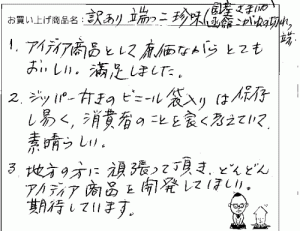 お買い上げ商品名：訳あり 端っこ珍味（国産さきいか
函館こがね切れ端
1. アイディア商品として廉価ながらとても
おいしい。満足しました。
2. ジッパー付きのビニール袋入りは保存
し易く、消費者のことを良く考えていて
素晴らしい。
3. 地方の方に頑張って頂き、どんどん
アイディア商品を開発してほしい。
期待しています。